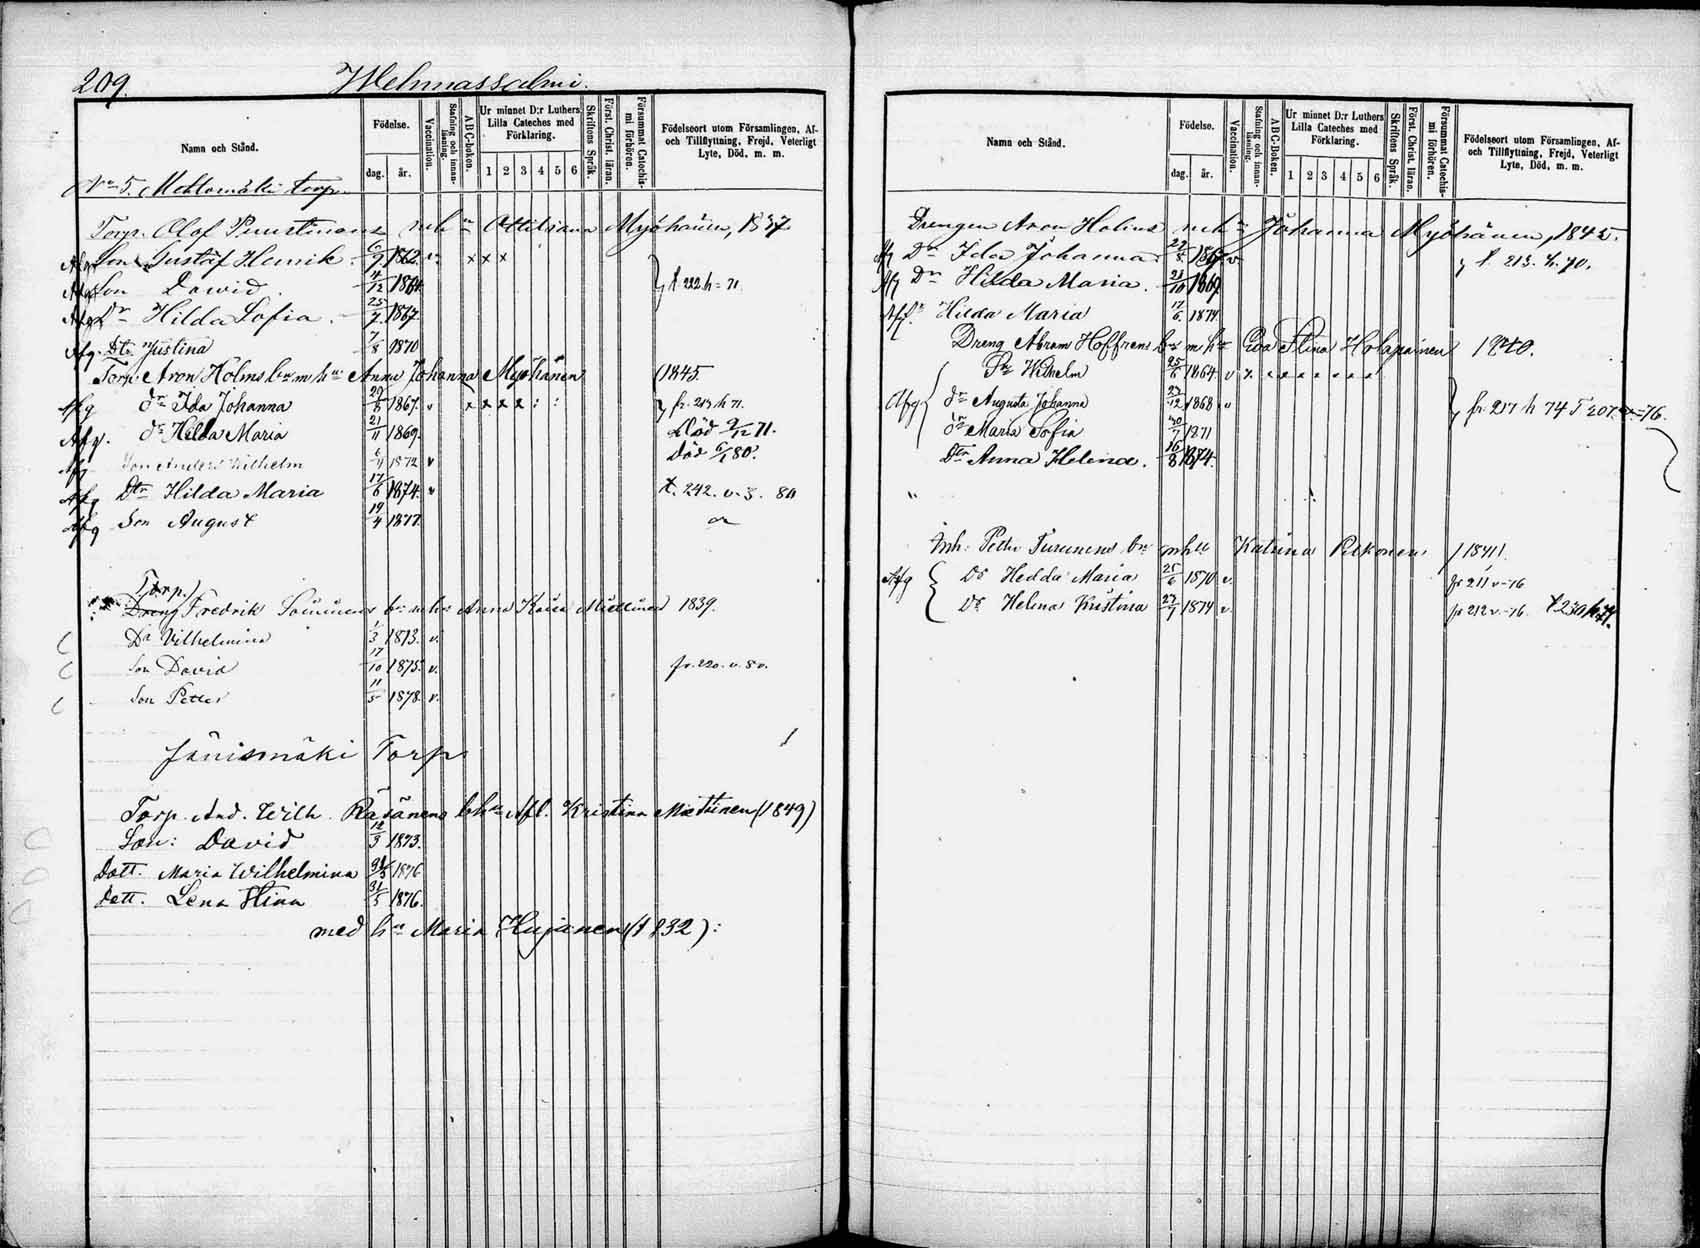 209. Wehmassalmi.
Namn och Stånd.
Födelse.
dag. år.
Vaccination.
Stafning och innanläsning.
ABC-boken.
Ur minnet D:r Luthers Lilla Cateches med Förklaring.
1 2 3 4 5 6
Skriftens Språk.
Först. Christ. läran.
Försummat Catechismi förhören.
Födelseort utom Församlingen, Af- och Tillflyttning, Frejd, Veterligt Lyte, Död, m. m.
No 5. Mehtomäki torp.
Torp. Olof Puustinens mhu Ottiliana Myöhänen, 1837
Afg Son Gustaf Henrik 6/9 1862. v. x x x
Afg Son Dawid. 4/12 1864. } t 222 h = 71
Afg Dr Hilda Sofia. 25/7 1867.
Afg. Dtr Justina 7/8 1870
Torp. Aron Holms bn m hu Anna Johanna Myöhänen (1845.
Afg dr Ida Johanna 29/8 1867. v x x x x : : } fr. 213 h 71.
Afg. dr Hilda Maria 21/11 1869. Död 9/12 71.
Afg Son Anders Wilhelm 6/4 1872 v Död 6/1 80.
Afg Dtr Hilda Maria 17/6 1874. v t. 242. v. 3. 80
Afg Son August 19/4 1877.
Torp.
Dreng Fredrik bn mhu Anna Kaisa Miettinen 1839.
Dr Vilhelmina 1/3 1873. v.
Son David 17/10 1875. v. fr. 220. v. 80.
Son Petter 11/5 1878. v.
Jänismäki Torp
Torp. And. Wilh. Räsänens bhu Afl. Kristina Miettinen (1849)
Son: David 12/3 1873.
Dott. Maria Wilhelmina 1876
Dott. Lena Stina 31/5 1876.
med hu Maria Hujanen (1832):
Namn och Stånd.
Födelse.
dag. år.
Vaccination.
Stafning och innanläsning.
ABC-Boken.
Ur minnet D:r Luthers Lilla Cateches med Förklaring.
1 2 3 4 5 6
Skriftens Språk.
Först. Christ. läran.
Försummat Catechismi förhören.
Födelseort utom Församlingen, Af- och Tillflyttning, Frejd, Veterligt Lyte, Död, m. m.
Drengen Aron Holms mhu Johanna Myöhänen, 1845.
Afg Dr Ida Johanna 29/8 1867 v. } t. 213. h. 70.
Afg Dr Hilda Maria. 21/10 1869
Afg. Dr Hilda Maria 17/6. 1874
Dreng Abram Hoffrens bn m hu Eva Stina Holopainen 1840.
Wilhelm 25/6 1864 v x x x x x x x
Afg { dr Augusta Johanna 23/12 1868 v } fr. 217 h 74 T 207. =76.
dr Maria Sofia 20/7 1871
Dtr Anna Helena. 16/8 1874.
Inh. Petter Turunens bn mhu Katrina Pitkonen, (1841).
Afg { Dr Hedda Maria 25/6 1870 v. fr 211 v-76
Dr Helena Kristina 27/7 1874 v. fr 212 v.-76. t 230 h 77.